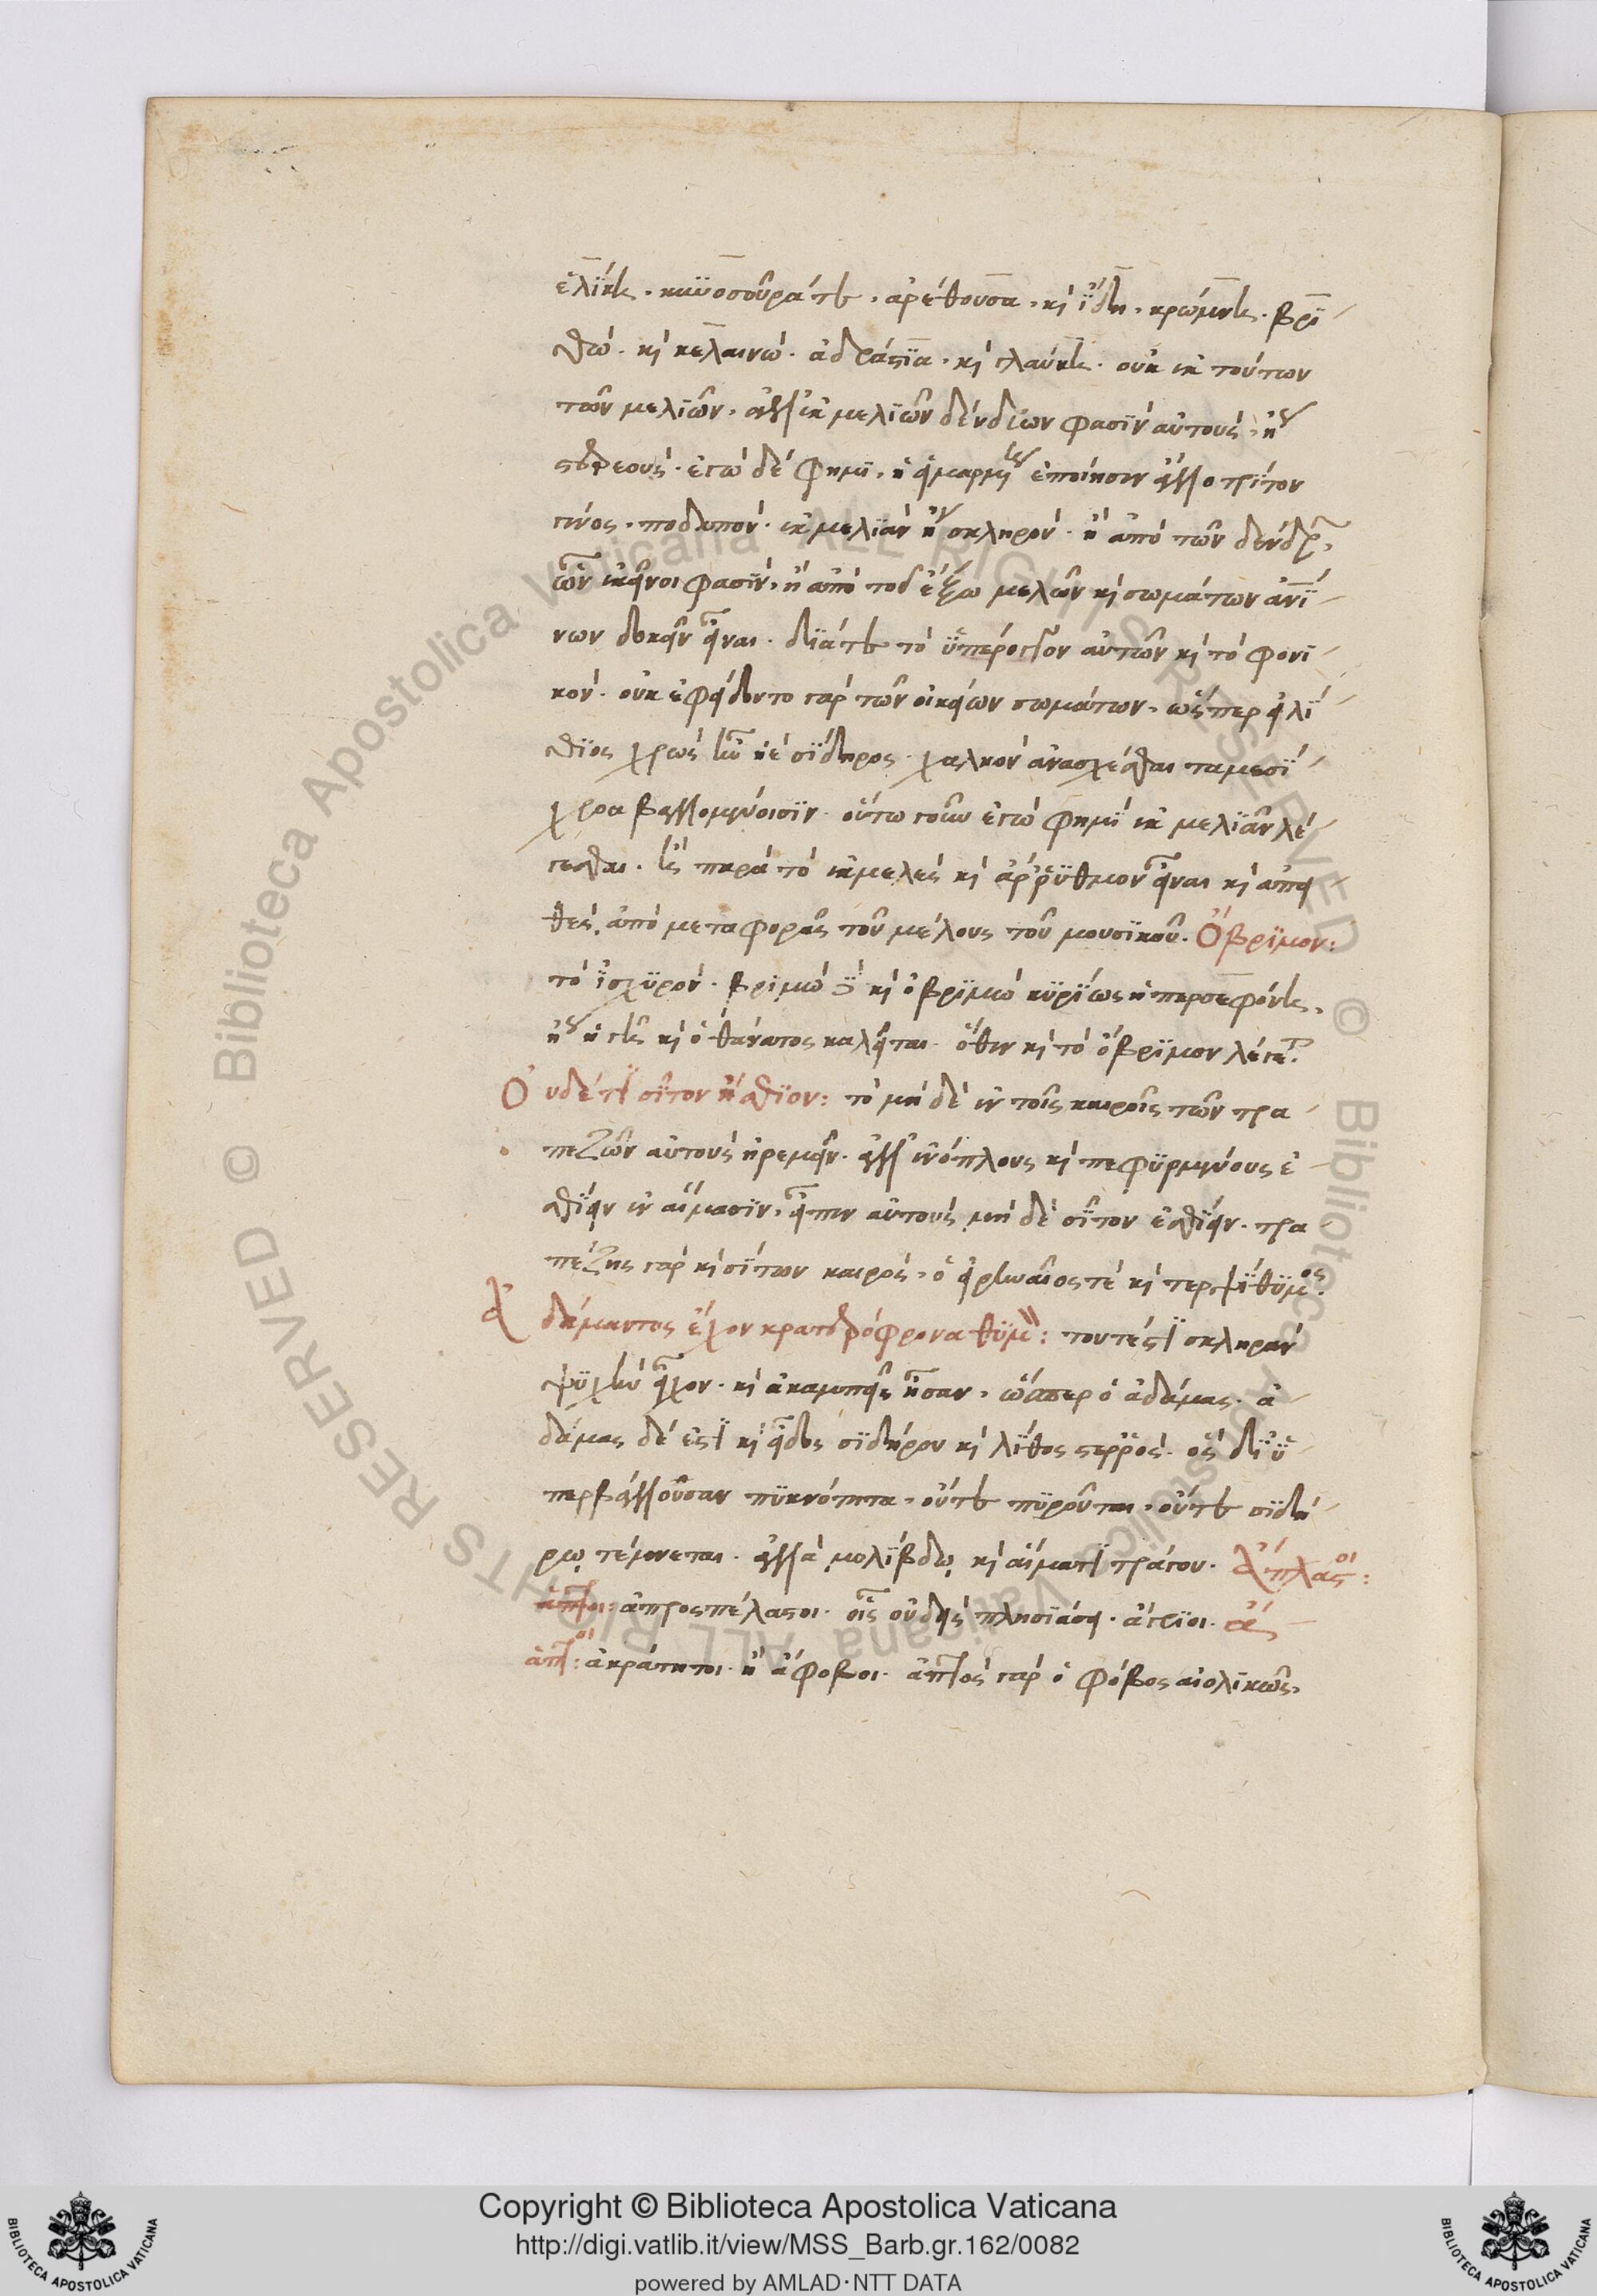 ἑλίκη. κυνοσουρά τε. ἀρέθουσα. καὶ ἴδη. κρώμνη. βρι
θώ. καὶ κελαινώ. ἀδράστια. καὶ γλαύκη. οὐκ ἐκ τούτων
τῶν μελιῶν, ἀλλ' ἐκ μελιῶν δένδρων φασὶν αὐτούς, ἢ
στερεούς. ἐγὼ δέ φημι, ἡ εἱμαρμένη ἐποίησεν ἄλλο τρίτον
γένος. ποδαπόν. ἐκ μελιᾶν ἢ σκληρόν. ἢ ἀπὸ τῶν δένδρ
ὧν ἐκεῖνοι φασίν, ἢ ἀπὸ τοῦ ἔξω μελῶν καὶ σωμάτων ἀνί
νων δοκεῖν εἶναι. διά τε τὸ ὑπέρογκον αὐτῶν καὶ τὸ φονι
κόν. οὐκ ἐφείδοντο γὰρ τῶν οἰκείων σωμάτων, ὥσπερ εἰ λί
θιος χρὼς ἦν ἠὲ σίδηρος. χαλκὸν ἀνασχέσθαι ταμεσί
χροα βαλλομένοισιν. οὕτω γοῦν ἐγώ φημι ἐκ μελιᾶν λέ
γεσθαι. ἢ παρὰ τὸ ἐκμελὲς καὶ ἀρρύθμον εἶναι καὶ ἀπει
θές, ἀπὸ μεταφορᾶς τοῦ μέλους τοῦ μουσικοῦ. Ὄβριμον:
τὸ ἰσχυρόν. βριμὼ δὲ καὶ ὀβριμὼ κυρίως ἡ περσεφόνη,
ἢ ἡ γῆ καὶ ὁ θάνατος καλεῖται. ὅθεν καὶ τὸ ὄβριμον λέγεται.
Οὐδέ τι σῖτον ἤσθιον: τὸ μὴ δὲ ἐν τοῖς καιροῖς τῶν τρα
πεζῶν αὐτοὺς ἠρεμεῖν. ἀλλ' ἐνόπλους καὶ πεφυρμένους ἐ
σθίειν ἐν αἵμασιν, εἶπεν αὐτοὺς μὴ δὲ σῖτον ἐσθίειν. τρα
πέζης γὰρ καὶ σίτων καιρός, ὁ εἰρηναῖός τε καὶ τερψίθυμος.
Ἀδάμαντος ἔχον κρατερόφρονα θυμόν: τουτέστι σκληρὰν
ψυχὴν εἶχον. καὶ ἀκαμπεῖς ἦσαν, ὥσπερ ὁ ἀδάμας. ἀ
δάμας δέ ἐστι καὶ εἶδος σιδήρου καὶ λίθος στερρός. ὃς δι' ὑ
περβάλλουσαν πυκνότητα, οὔτε πυροῦται, οὔτε σιδή
ρῳ τέμνεται. ἀλλὰ μολίβδῳ καὶ αἵματι τράγου. Ἄπλαστοι:
ἄπλατοι: ἀπροσπέλαστοι. οἷς οὐδεὶς πλησιάσει. ἄγριοι. ἄ
απτοι: ἀκράτητοι. ἢ ἄφοβοι. ἀπτὸς γὰρ ὁ φόβος αἰολικῶς,
Copyright © Biblioteca Apostolica Vaticana
http://digi.vatlib.it/view/MSS_Barb.gr.162/0082
powered by AMLAD·NTT DATA